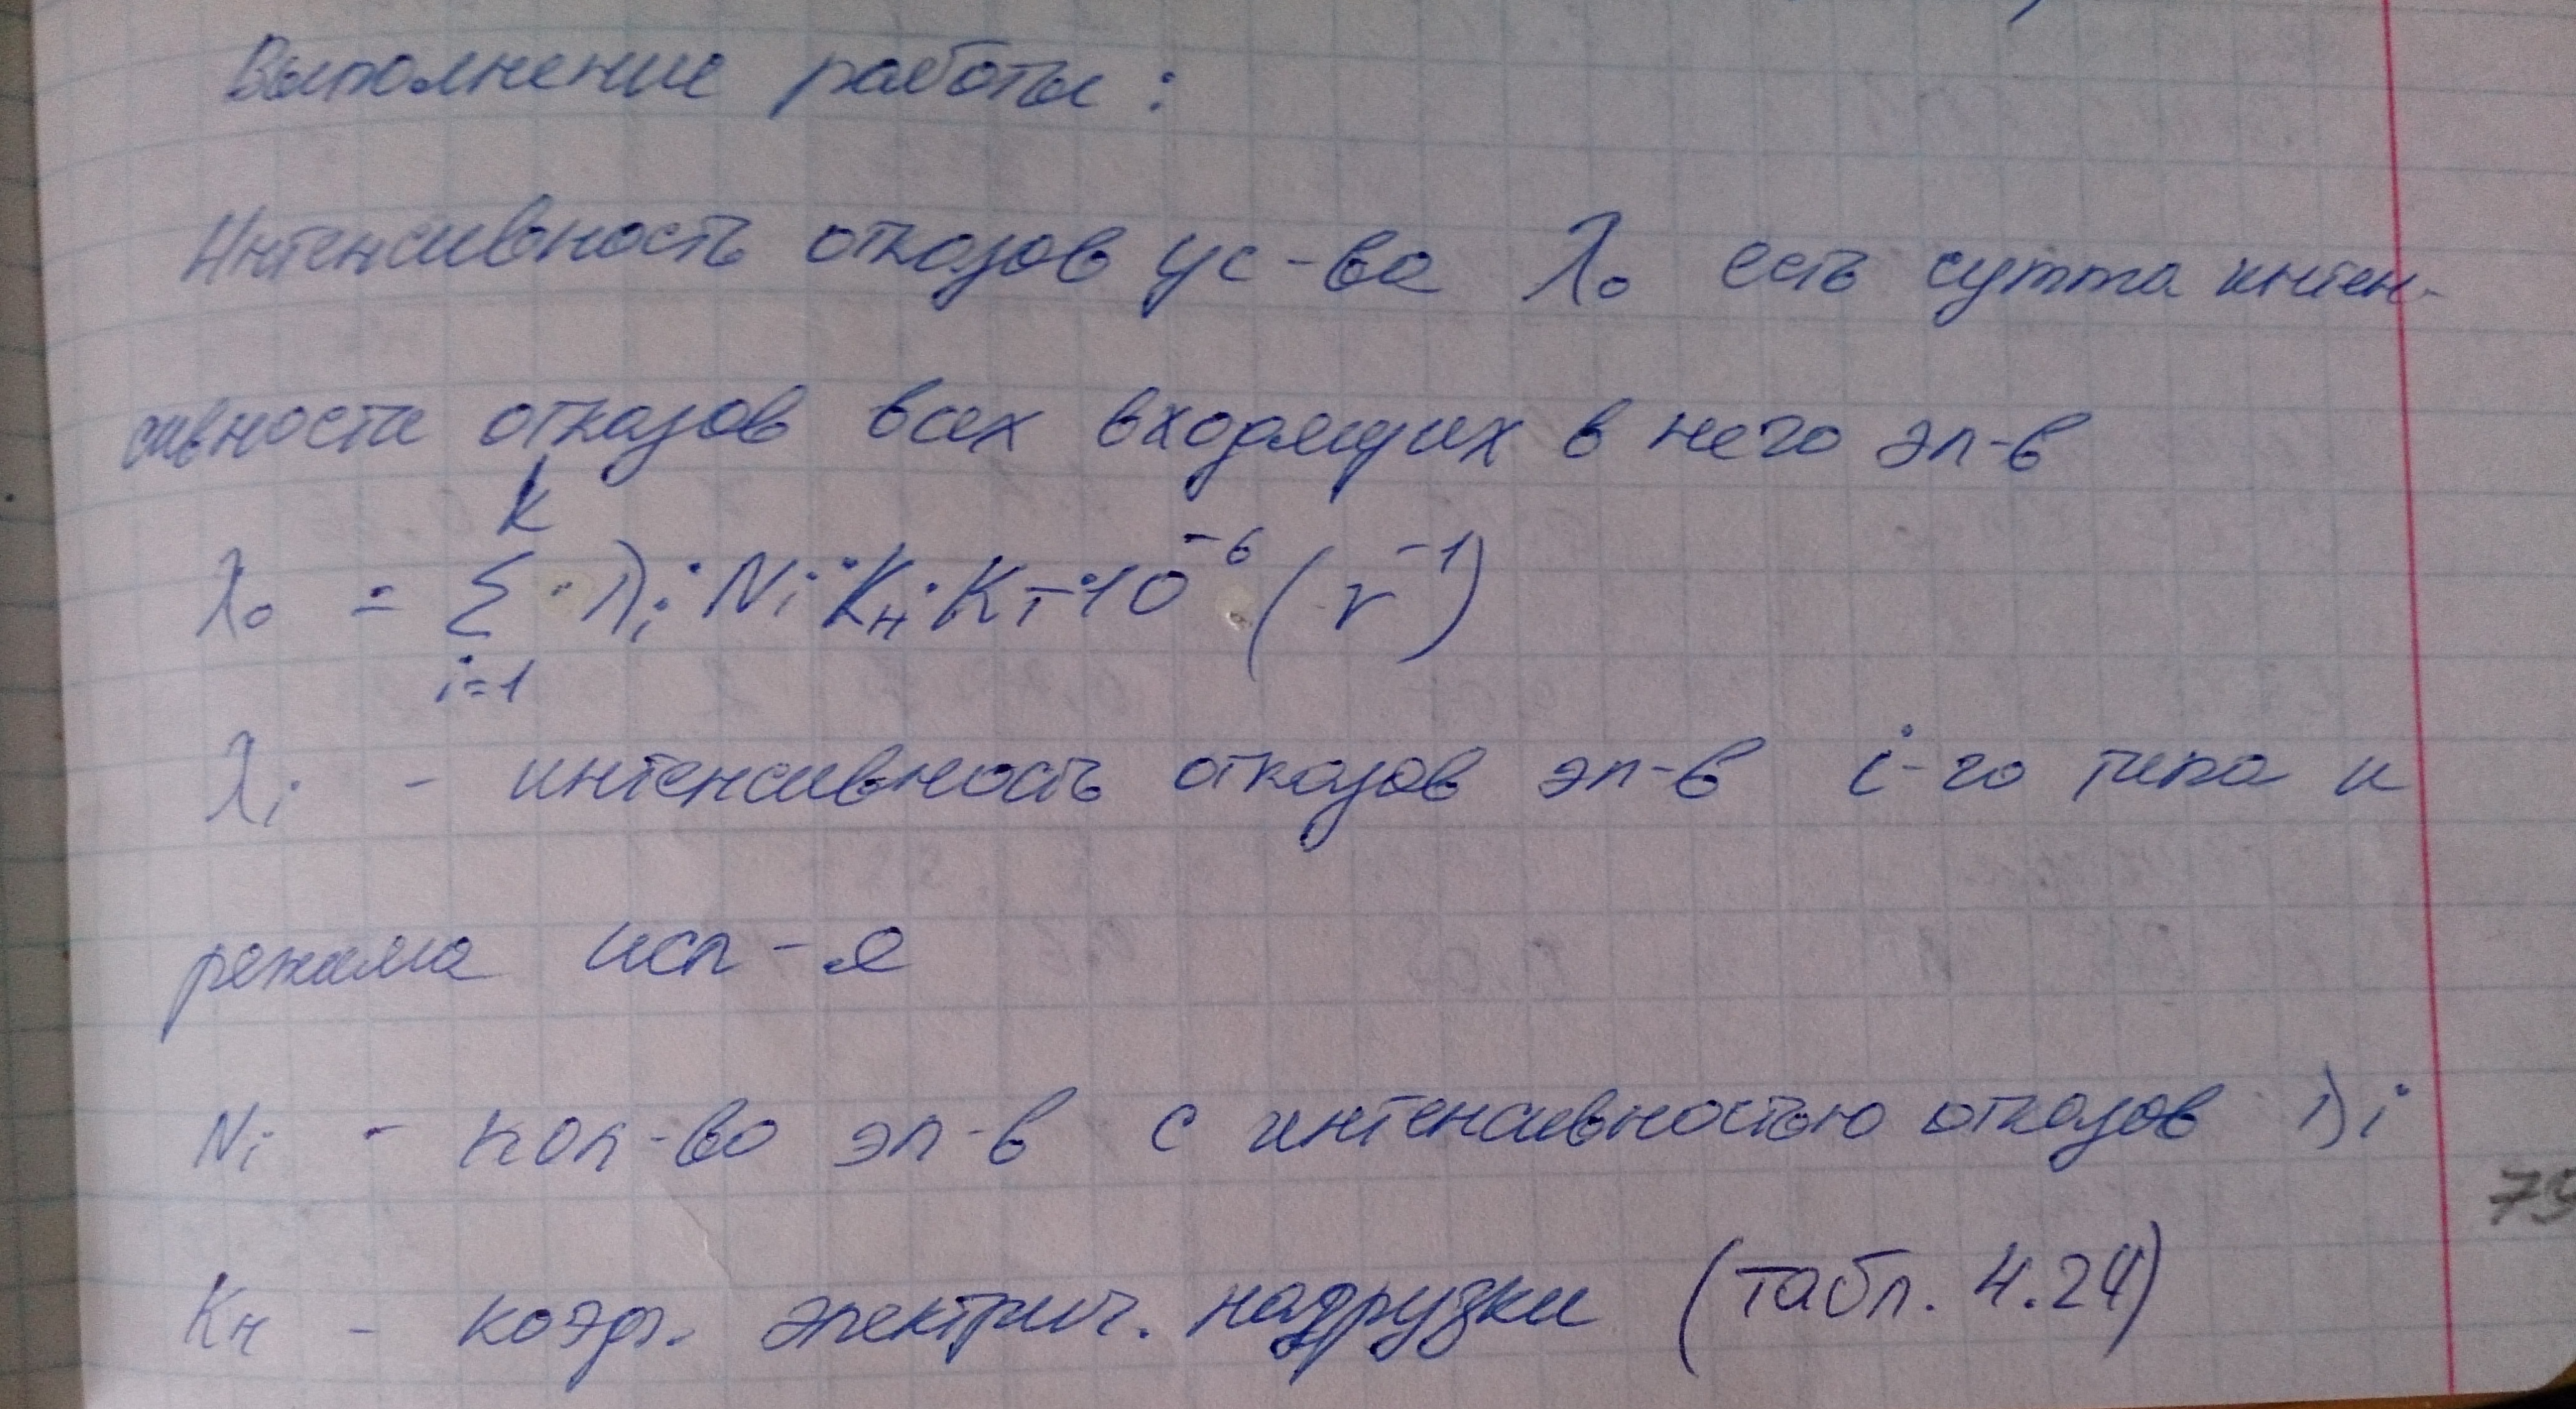 Выполнение работы:
Интенсивность отказов ус-ва λ₀ есть сумма интен-
сивности отказов всех входящих в него эл-в
λ₀ = Σ (i=1, k) · λᵢ · Nᵢ · Kн · Kт · 10⁻⁶ (г⁻¹)
λᵢ - интенсивность отказов эл-в i-го типа и
режима исп-я
Nᵢ - кол-во эл-в с интенсивностью отказов λᵢ
Kн - коэф. электрич. нагрузки (табл. 4.24)